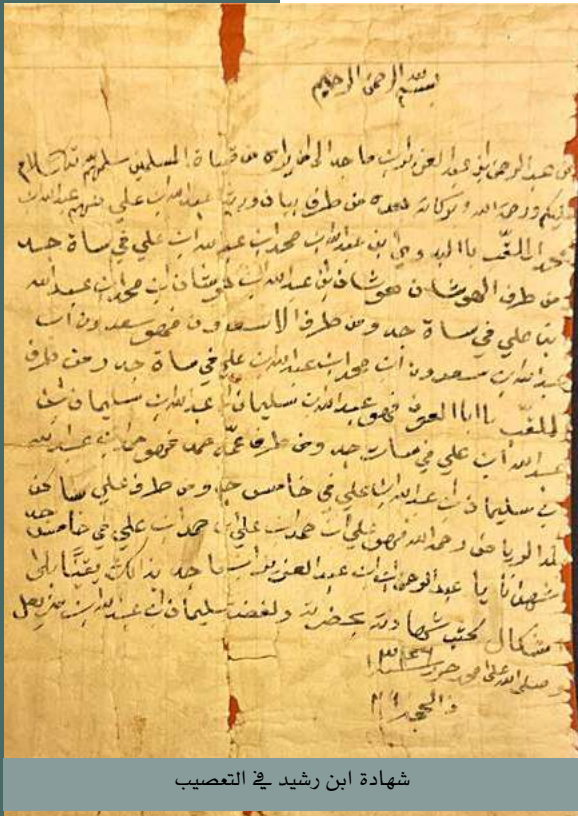 بسم الله الرحمن الرحيم
من عبد الرحمن ابن عبد العزيز ابن ماجد الى من يراه من قضاة المسلمين سلمهم الله سلام
عليكم ورحمة الله وبركاته وبعده من طرف بيان عبد الله ابن علي فهو عبد الله ابن
محمد الملقب باالبدوي ابن عبد الله ابن محمد ابن عبد الله ابن علي في ساة جد
من طرف الهوشان هوشان ابن عبد الله ابن هوشان ابن محمد ابن عبد الله
ابن علي في ساة جد ومن طرف الاسعدون فهو سعدون ابن
عبد الله ابن سعدون ابن محمد ابن عبد الله ابن علي في ساة جد ومن طرف
الملقب باابا العون فهو عبد الله ابن سليمان ابن عبد الله ابن سليمان ابن
عبد الله ابن علي في سات جد ومن طرف عمه حمد فهو حمد ابن عبد الله
ابن سليمان ابن عبد الله ابن علي في خامس جد ومن طرف علي ساكن
بلد الرياض رحمه الله فهو علي ابن حمد ابن علي ابن حمد ابن علي في خامس جد
اشهد انا يا عبد الرحمن ابن عبد العزيز ابن ماجد بذالك يقينا بلى
اشكال كتب شهادته بحضرته ولفضه سليمان ابن عبد الله ابن
وصلى الله على محمد حرر سنة ١٣٤٦
ذ الحجه ٢١
شهادة ابن رشيد في التعصيب